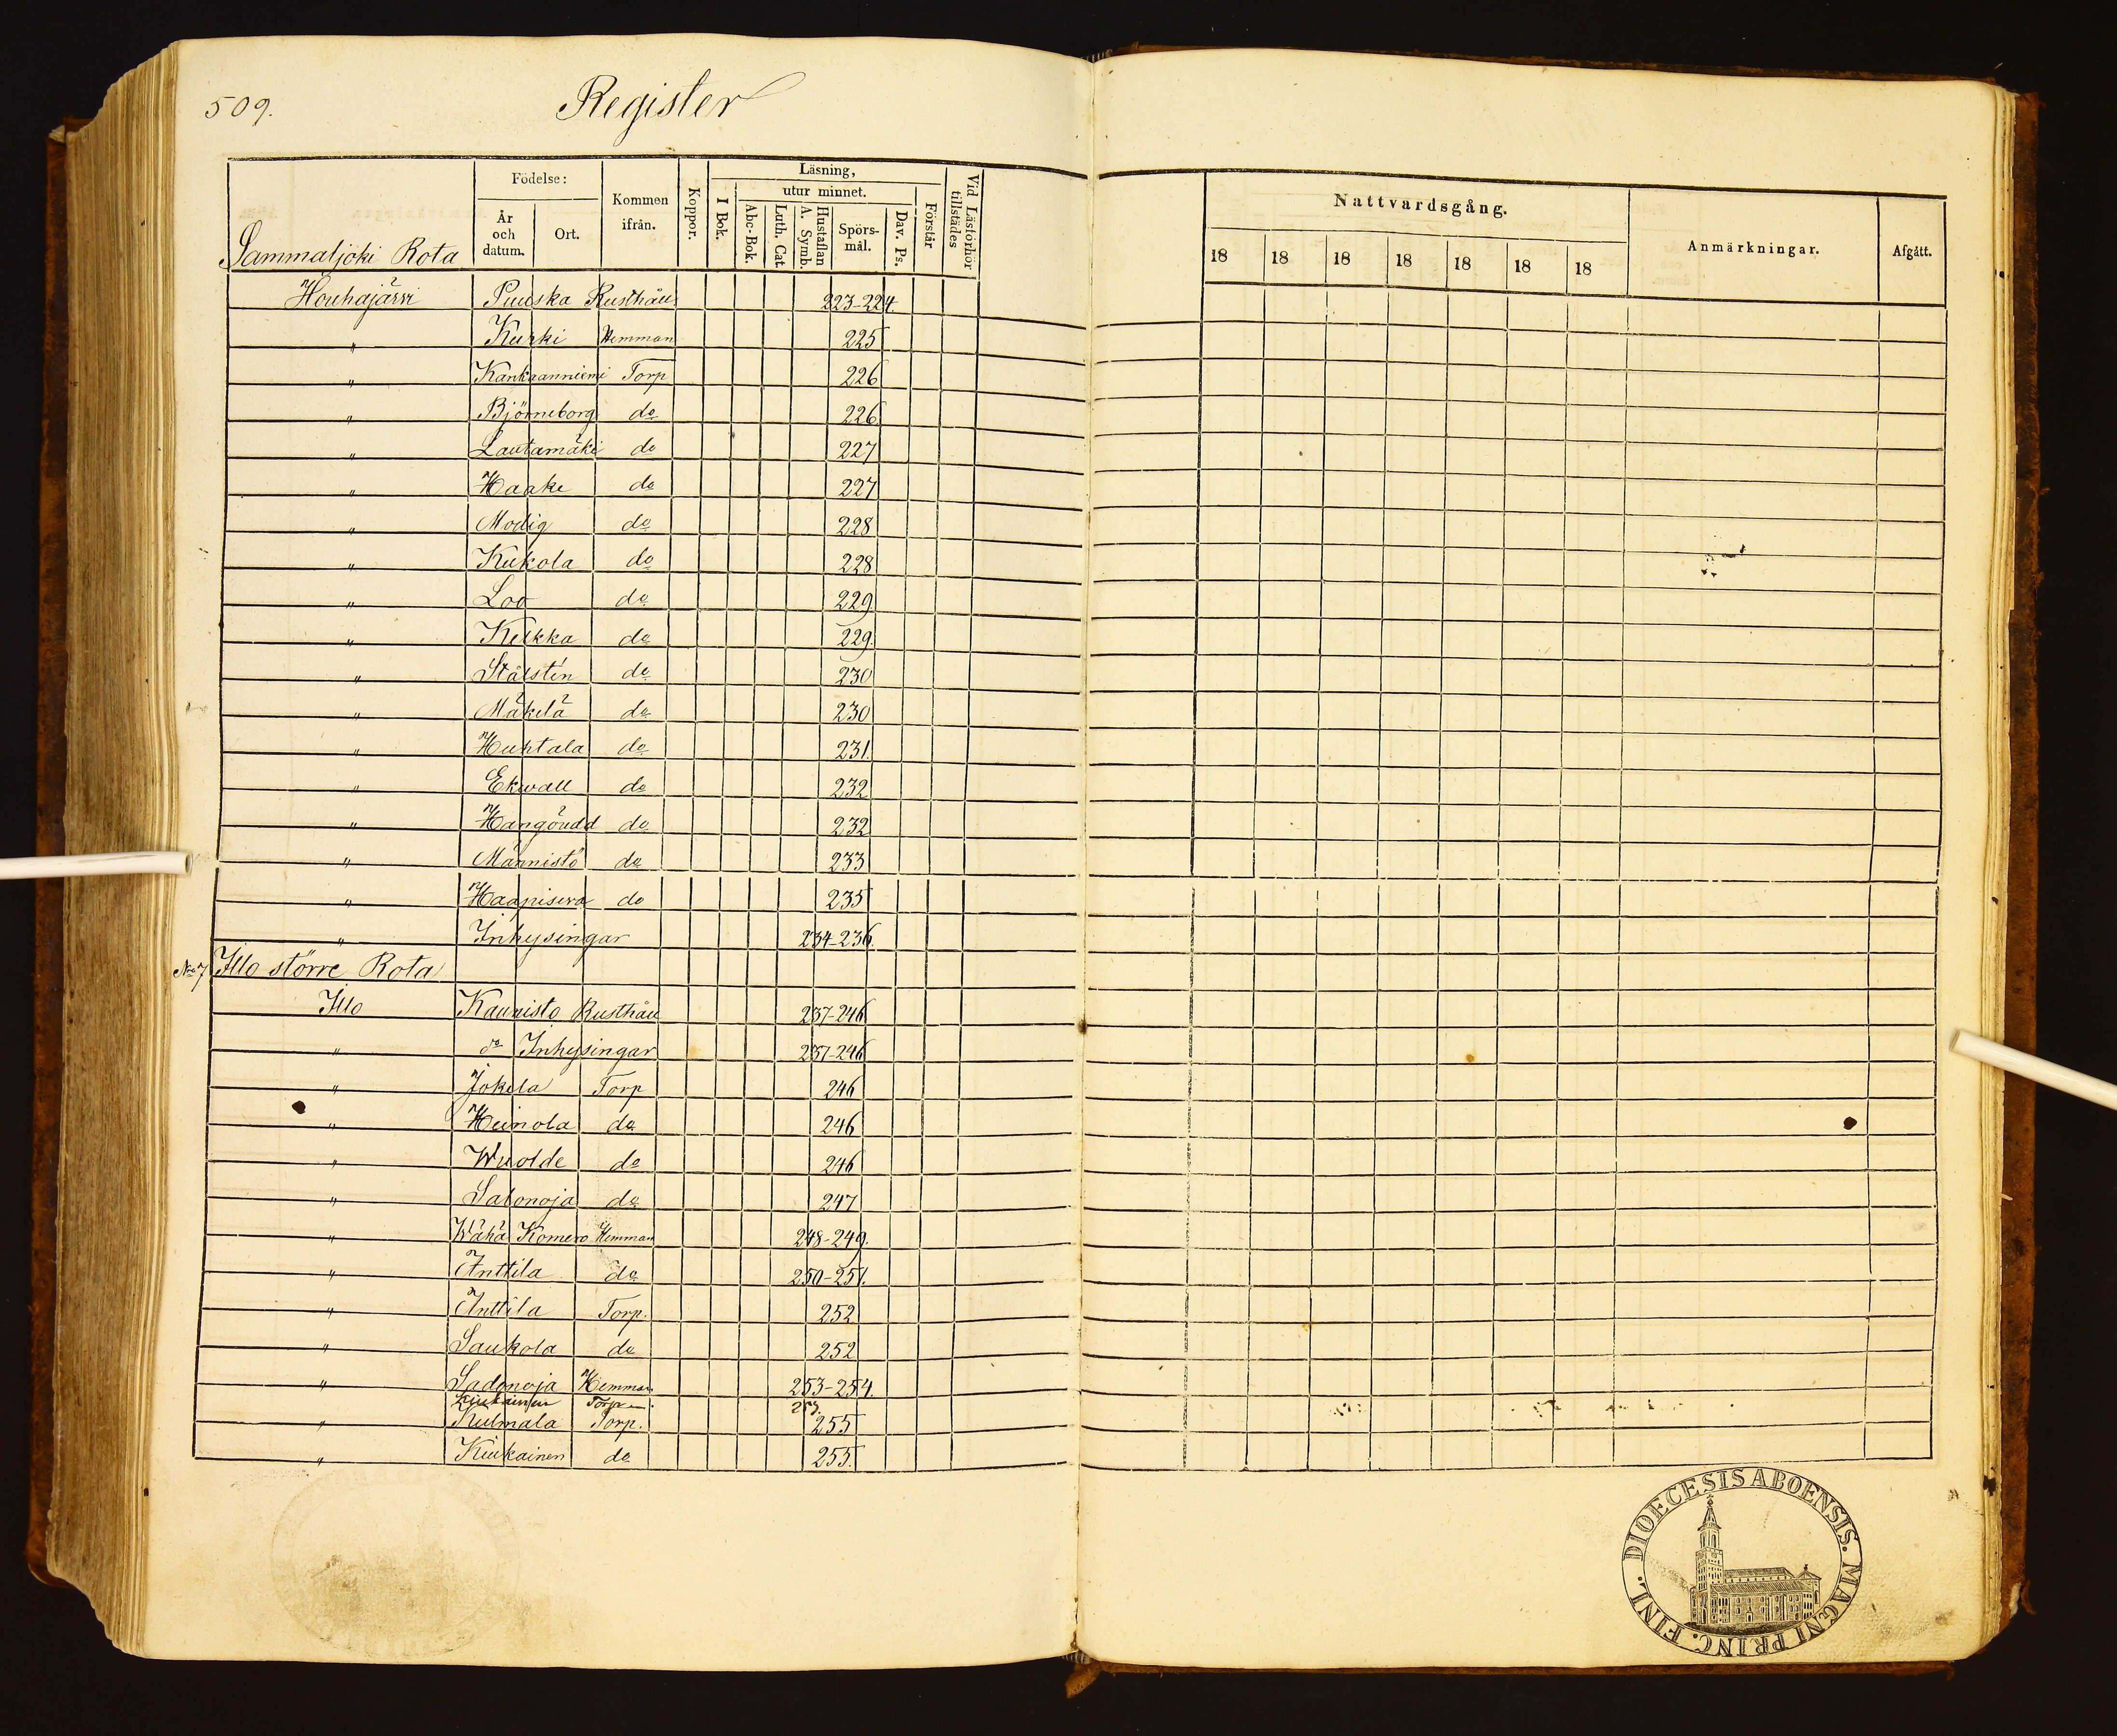 509.
Register
Sammaljoki Rota
Födelse:
År och datum.
Ort.
Kommen ifrån.
Koppor.
Läsning,
I Bok.
utur minnet.
Abc-Bok.
Luth. Cat.
Hustaflan A. Symb.
Spörsmål.
Dav. Ps.
Förstår
Vid Läsförhör tillstädes
Nattvardsgång.
18 18 18 18 18 18 18
Anmärkningar.
Afgått.
Houhajärvi Puuska Rusthåll 223-224.
" Kurki Hemman 225
" Kankaanniemi Torp 226
" Björneborg do 226
" Lautamäki do 227
" Haake do 227
" Modig do 228
" Kukola do 228
" Loo do 229
" Kelkka do 229.
" Stålsten do 230
" Mäkelä do 230
" Huhtala do 231.
" Ekwall do 232
" Hangöudd do 232
" Männistö do 233
" Haapisera do 235
" Inhysingar 234-236.
No 7 Illo större Rota
Illo Kaunisto Rusthåll 237-246
" do Inhysingar 237-246
" Jokela Torp 246
" Heinola do 246
" Wuolde do 246
" Salonoja do 247
" Wähä Komero Hemman 248-249.
" Anttila do 250-251.
" Anttila Torp. 252
" Saukola do 252
" Sadonoja Hemman 253-254.
Torp 257.
" Kulmala Torp. 255
" Kiukainen do 255.
DIOECESIS ABOENSIS. MAGNI PRINC. FINL.